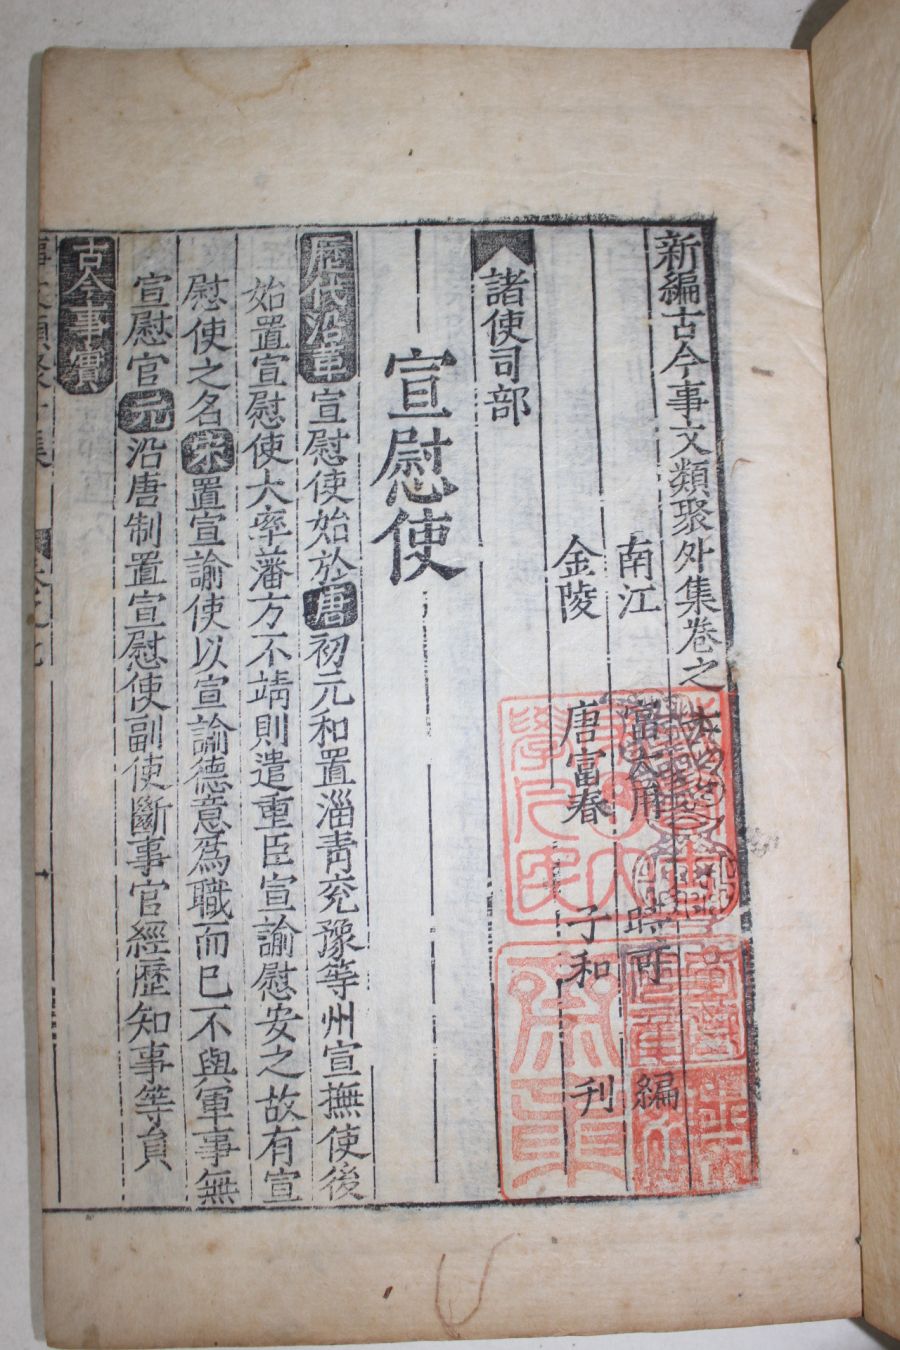 新編古今事文類聚外集卷之
南江 富大用 時可 編
金陵 唐富春 子和 刋
諸使司部
宣慰使
歷代沿革 宣慰使始於唐初元和置淄青兖豫等州宣撫使後
始置宣慰使大率藩方不靖則遣重臣宣諭慰安之故有宣
慰使之名宋置宣諭使以宣諭德意爲職而已不與軍事無
宣慰官元沿唐制置宣慰使副使斷事官經歷知事等員
古今事實